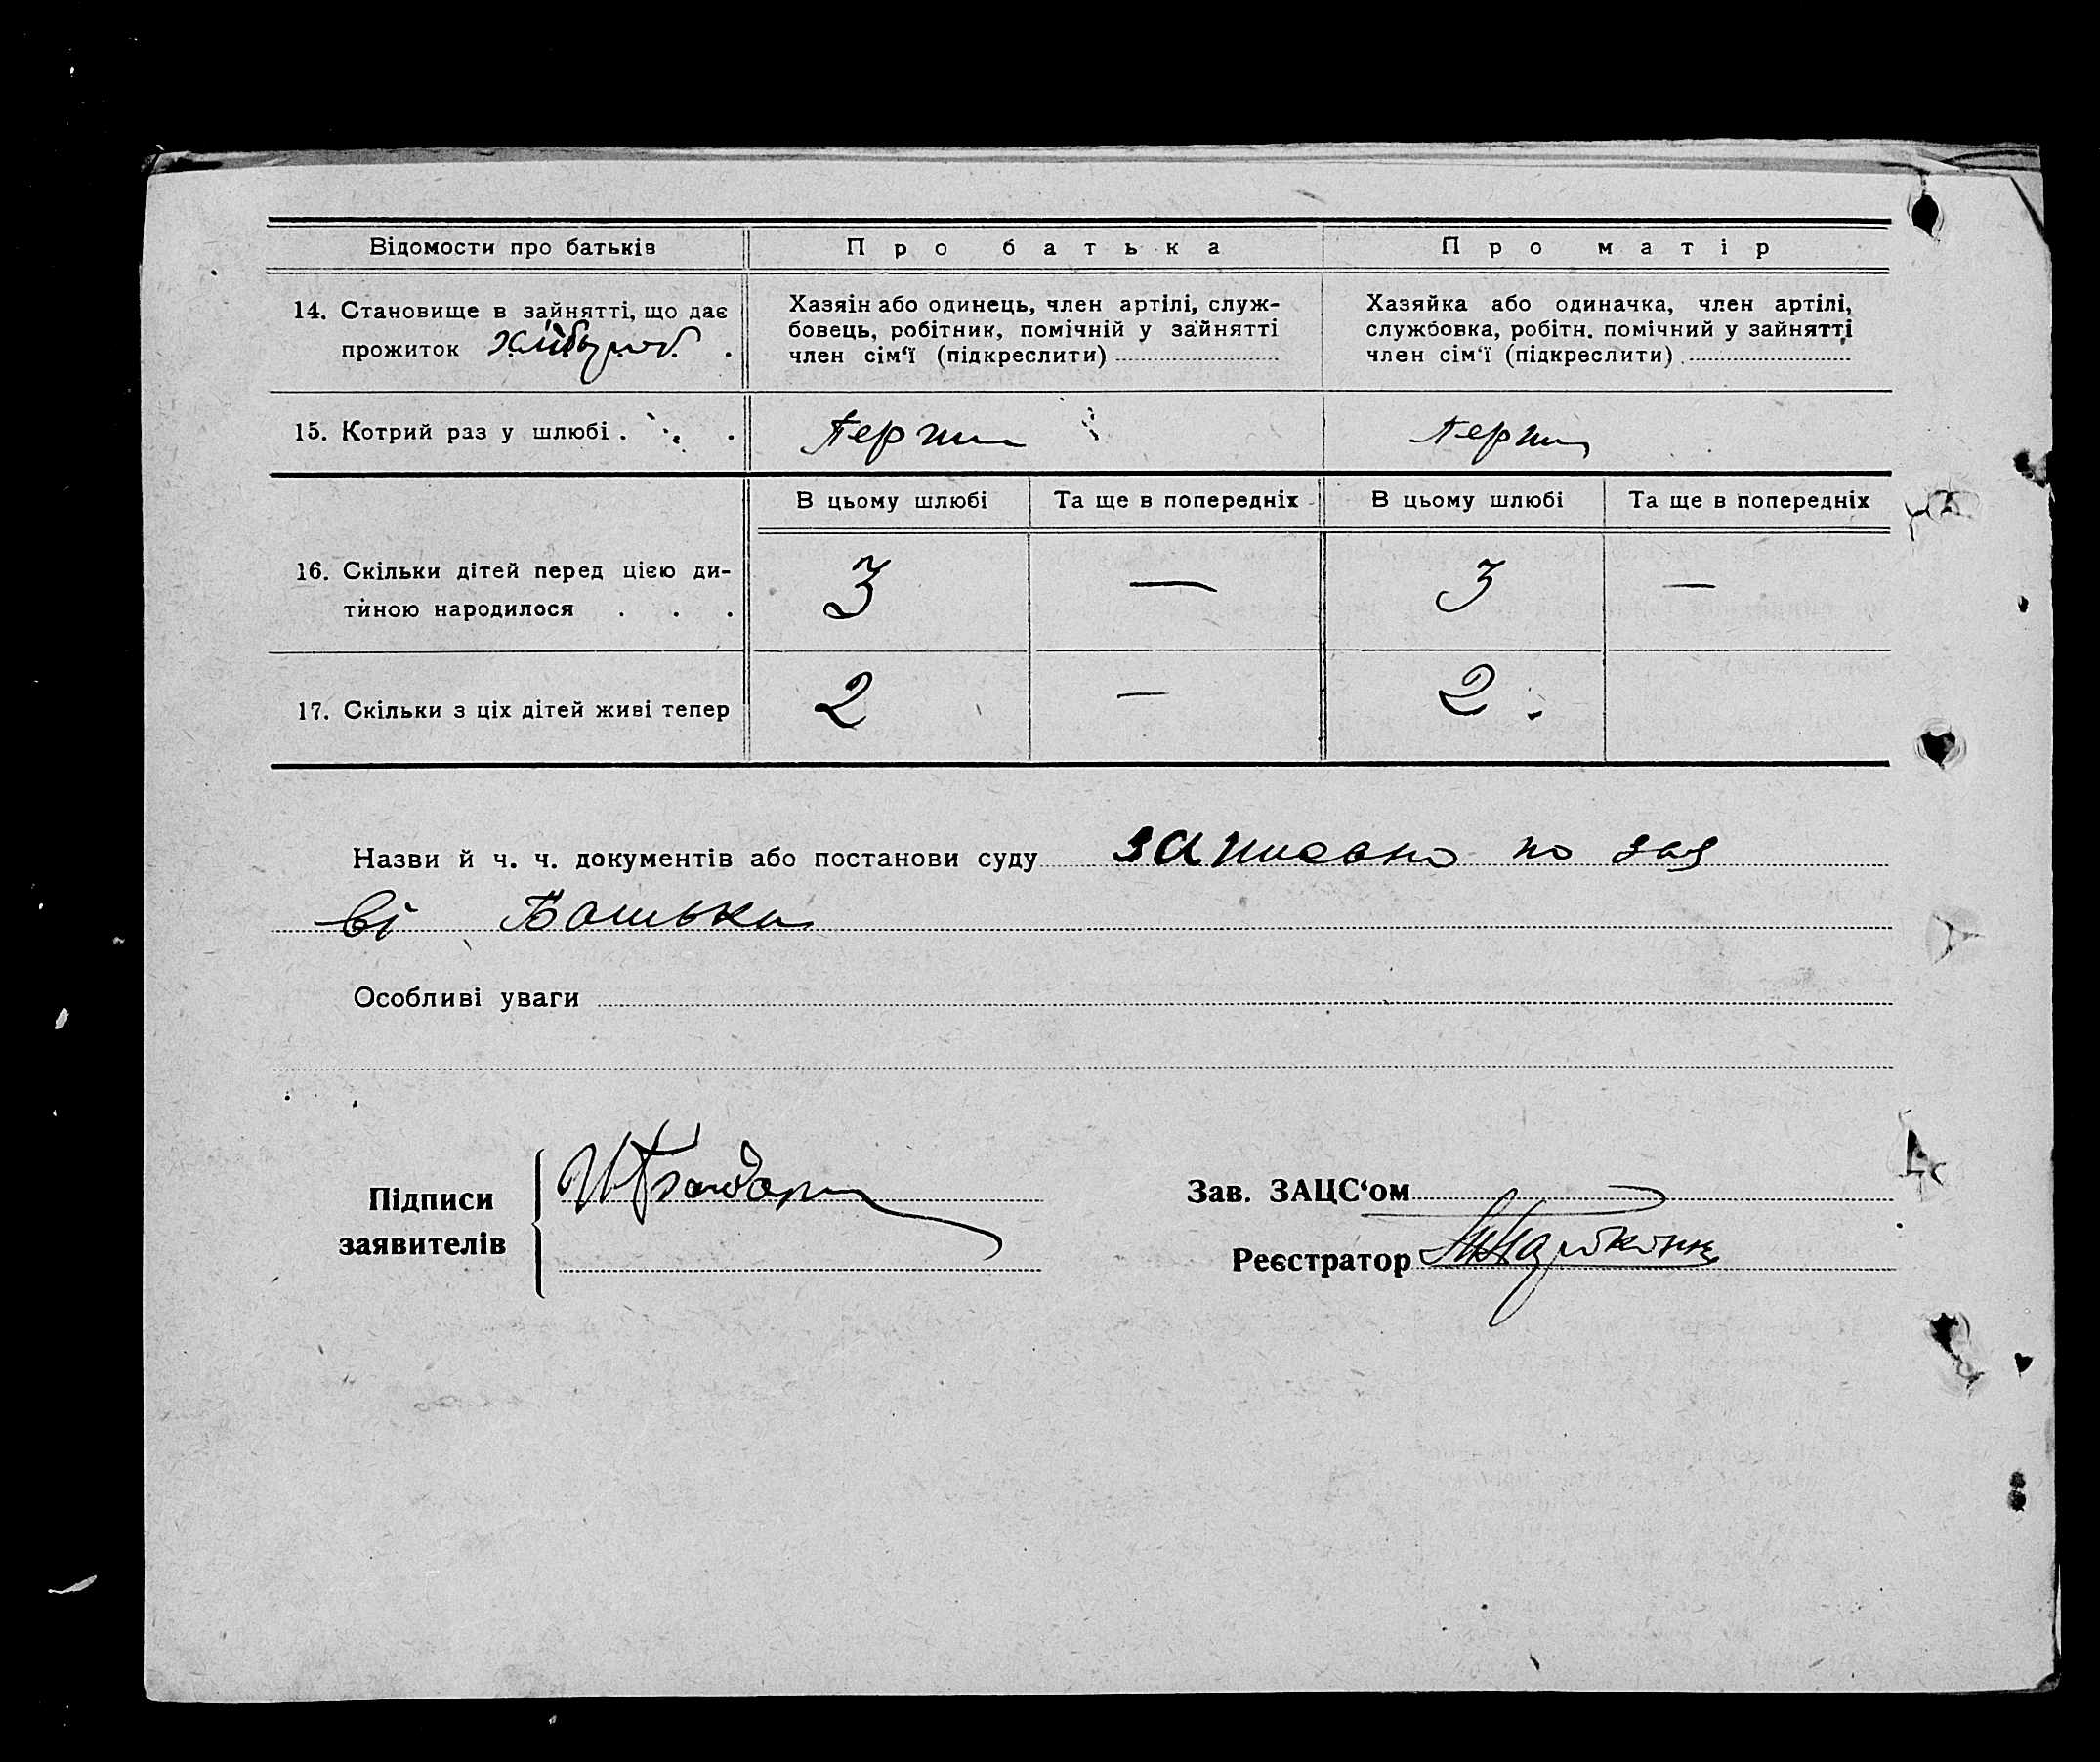 Відомости про батьків
Про батька
Про матір
14. Становище в зайнятті, що дає
прожиток хлібороб.
Хазяїн або одинець, член артілі, служ-
бовець, робітник, помічній у зайнятті
член сім‘ї (підкреслити)
Хазяйка або одиначка, член артілі,
службовка, робітн. помічний у зайнятті
член сім‘ї (підкреслити)
15. Котрий раз у шлюбі . . .
В цьому шлюбі
Та ще в попередніх
В цьому шлюбі
Та ще в попередніх
16. Скільки дітей перед цією ди-
тиною народилося . . .
3
—
3
—
17. Скільки з ціх дітей живі тепер
2
—
2
Назви й ч. ч. документів або постанови суду записано по зая
ві Батька
Особливі уваги
Підписи
заявителів
Зав. ЗАЦС‘ом
Реєстратор